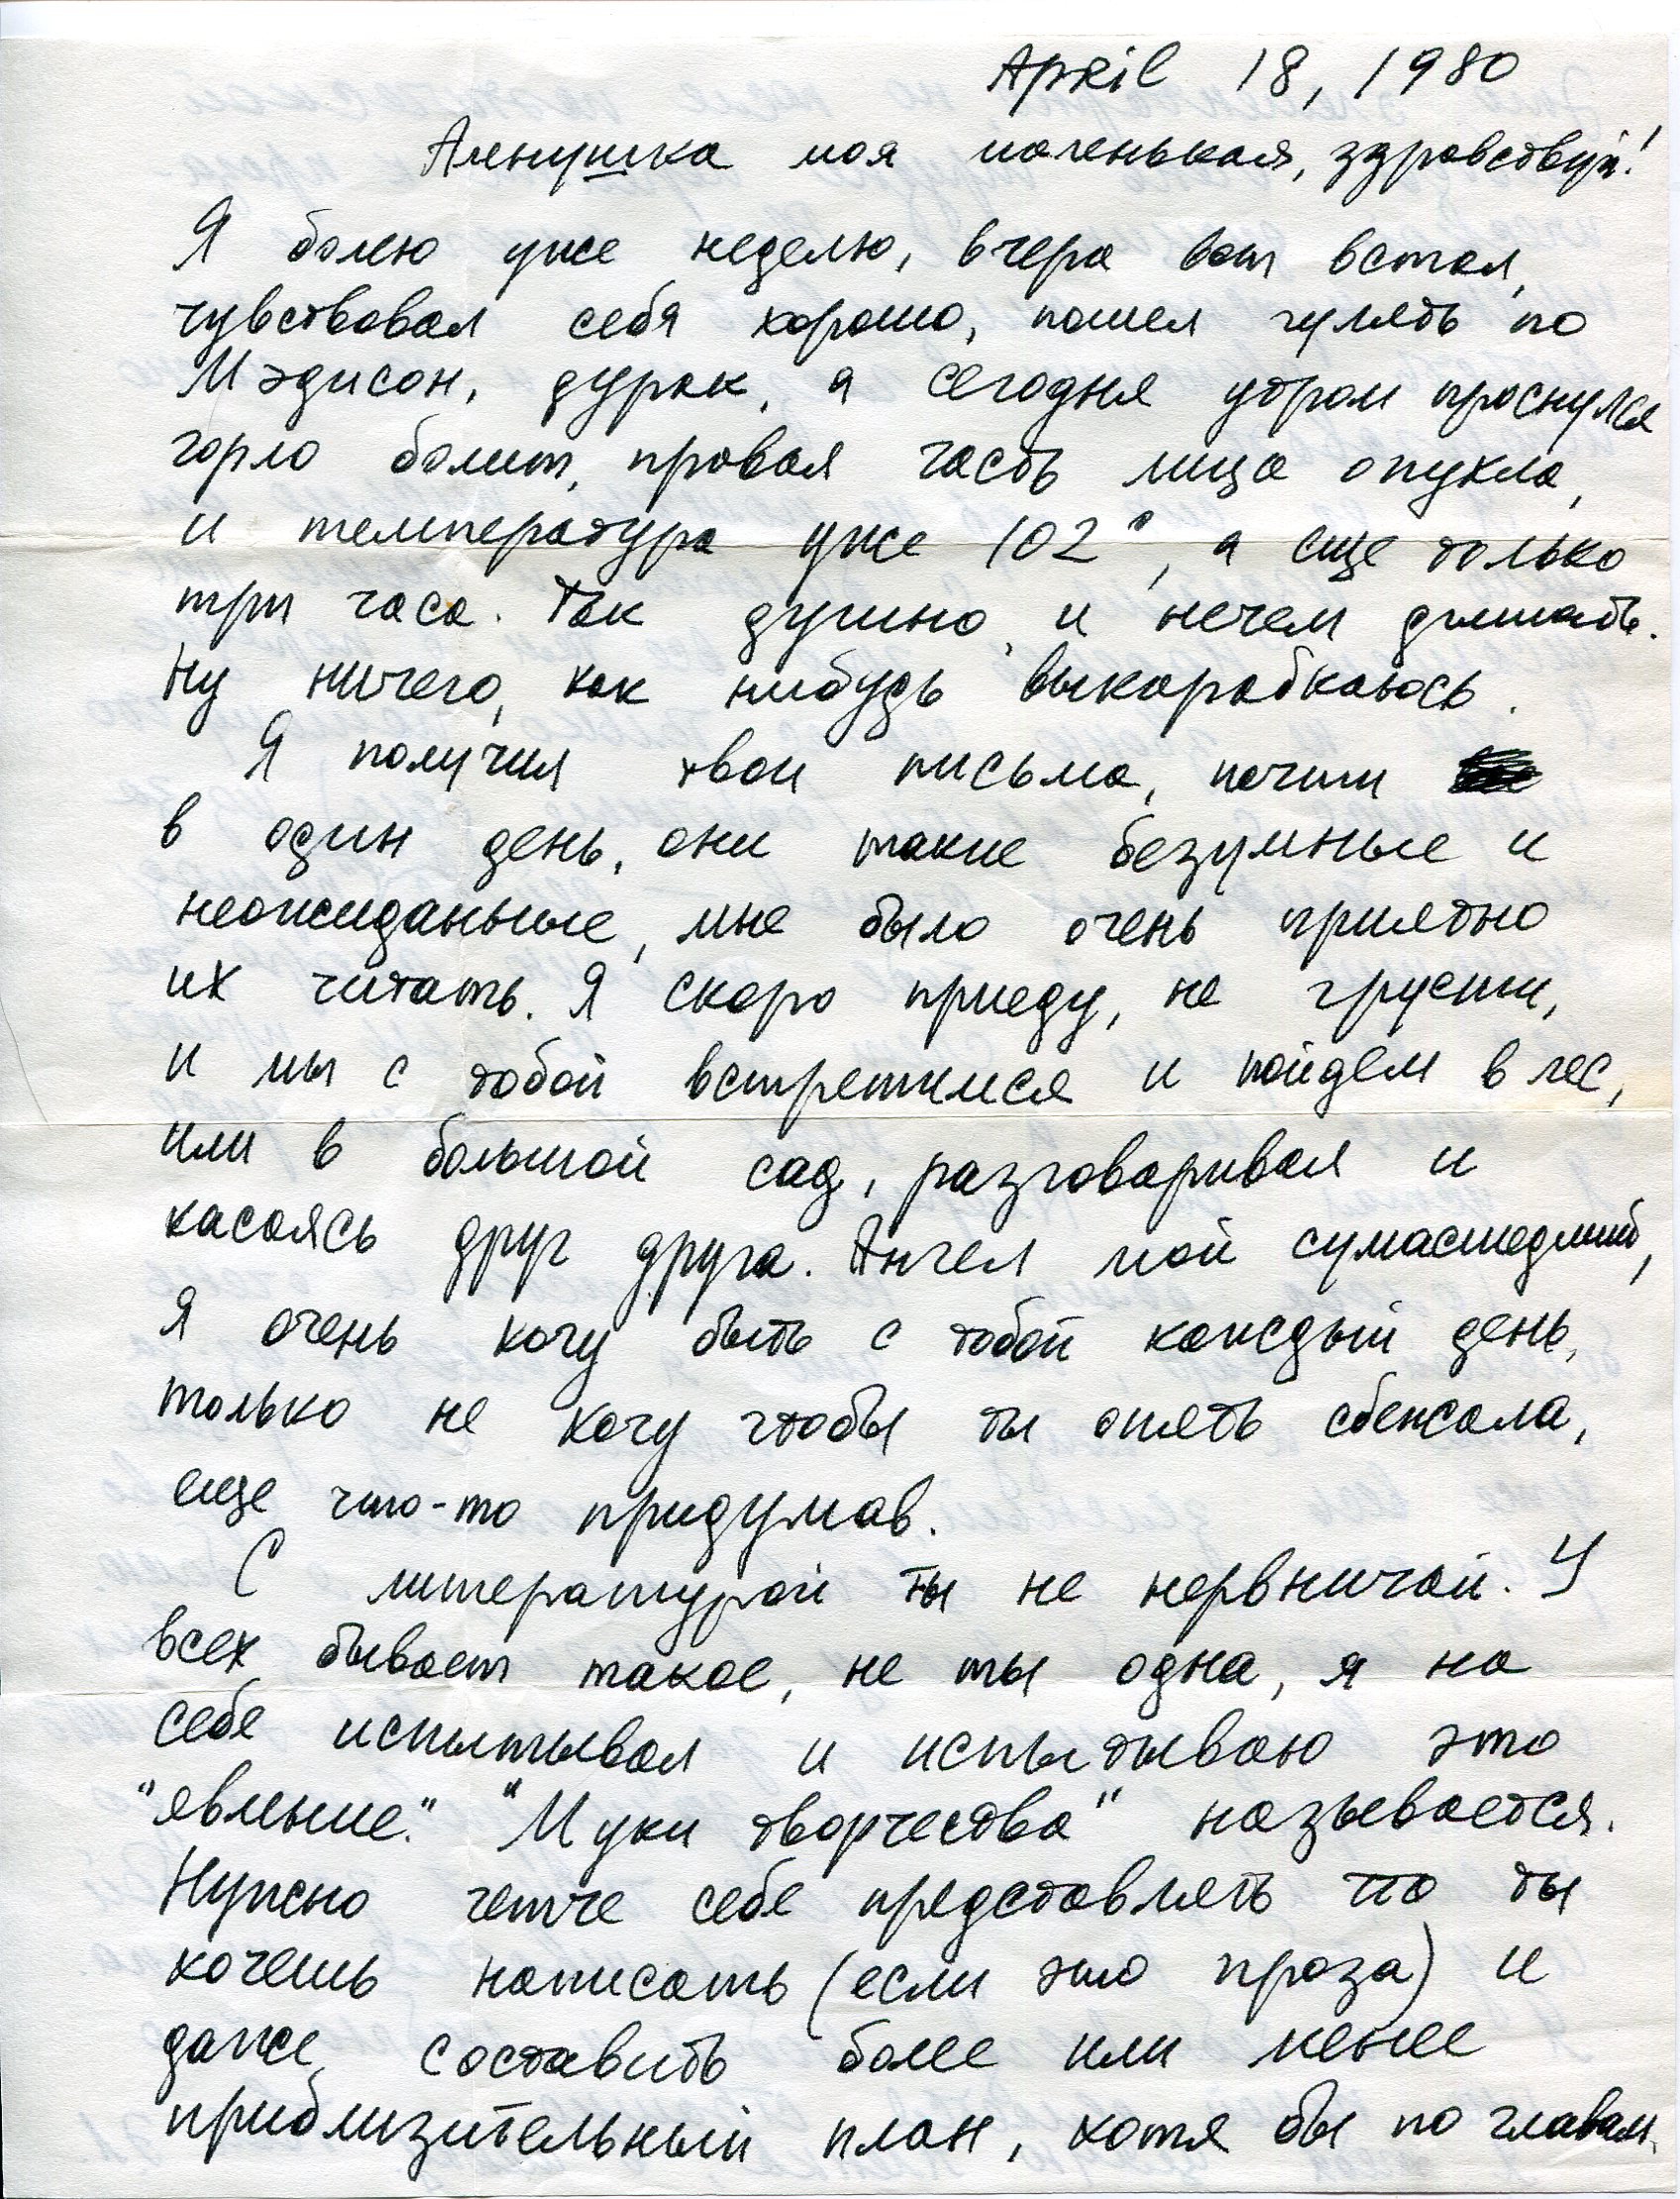 April 18, 1980
Аленушка моя маленькая, здравствуй!
Я болею уже неделю, вчера вот встал,
чувствовал себя хорошо, пошел гулять по
Мэдисон, дурак, а сегодня утром проснулся
горло болит, правая часть лица опухла,
и температура уже 102°, а еще только
три часа. Так душно, и нечем дышать.
Ну ничего, как нибудь выкарабкаюсь.
Я получил твои письма, почти
в один день, они такие безумные и
неожиданные, мне было очень приятно
их читать. Я скоро приеду, не грусти,
и мы с тобой встретимся и пойдем в лес,
или в большой сад, разговаривая и
касаясь друг друга. Ангел мой сумасшедший,
Я очень хочу быть с тобой каждый день,
только не хочу чтобы ты опять сбежала,
еще что-то придумав.
С литературой ты не нервничай. У
всех бывает такое, не ты одна, я на
себе испытывал и испытываю это
"явление". "Муки творчества" называется.
Нужно четче себе представлять что ты
хочешь написать (если это проза) и
даже составить более или менее
приблизительный план, хотя бы по главам.